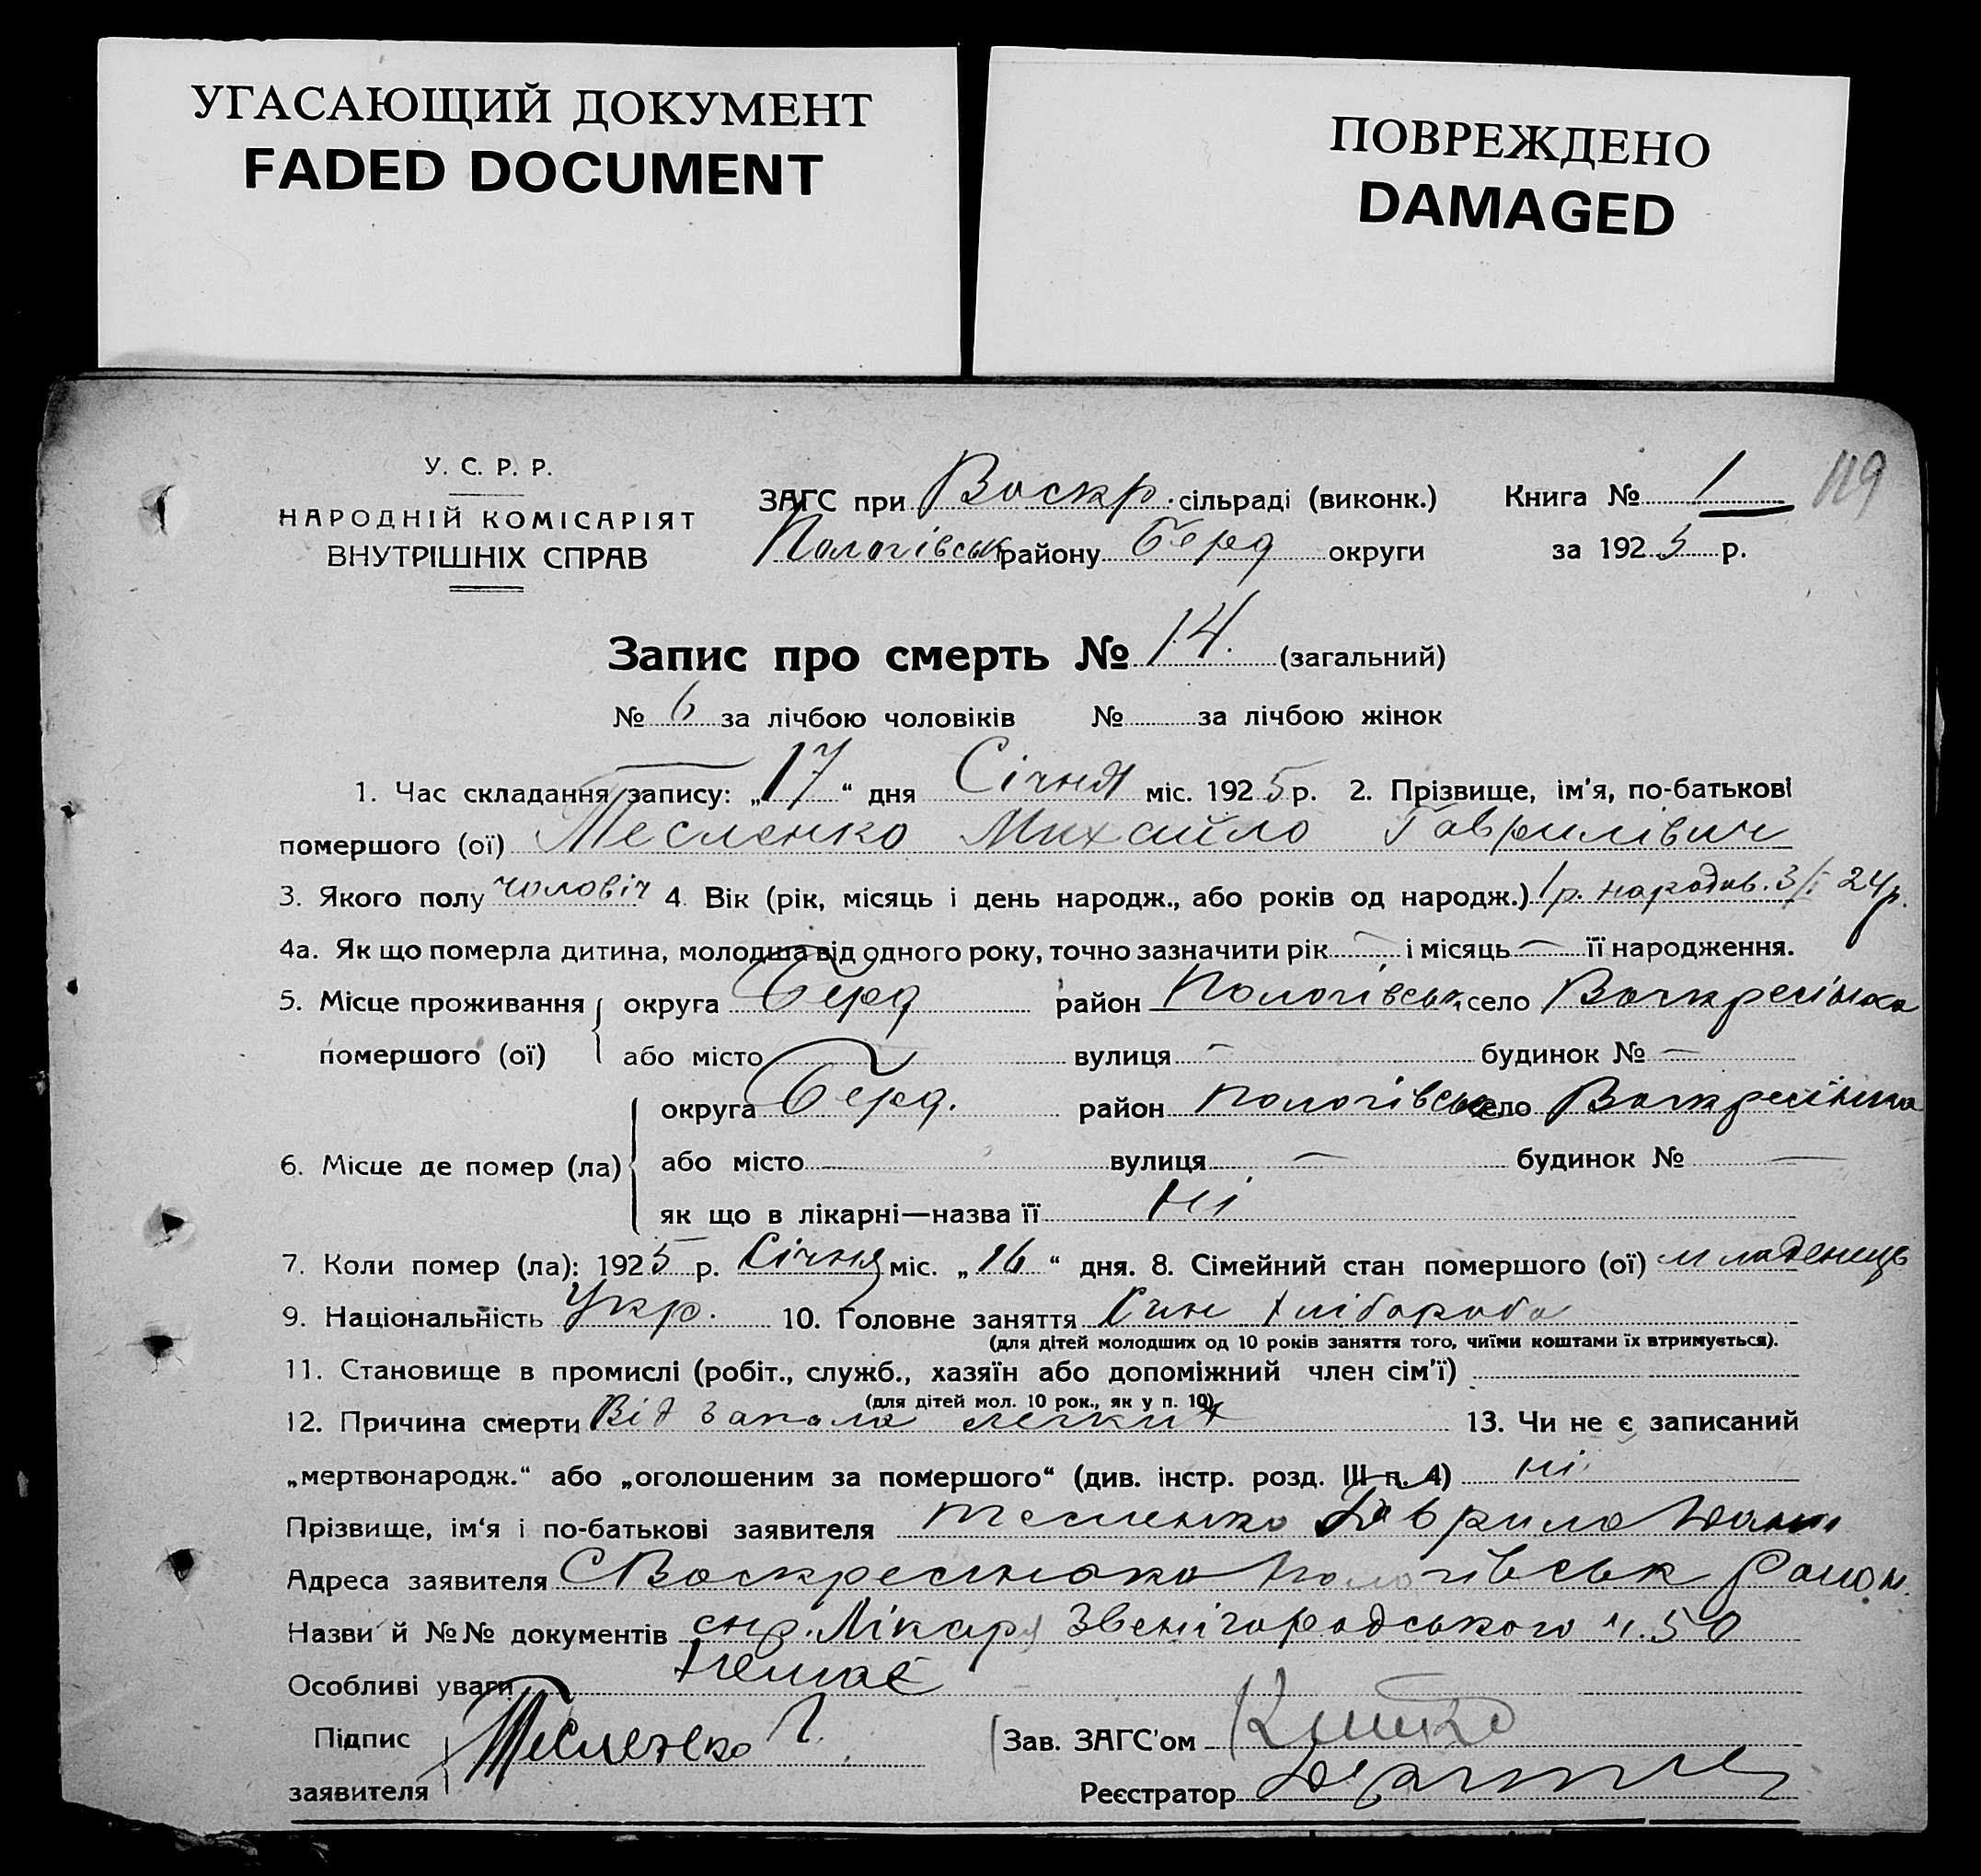 УГАСАЮЩИЙ ДОКУМЕНТ
FADED DOCUMENT
ПОВРЕЖДЕНО
DAMAGED
У. С. Р. Р.
НАРОДНІЙ КОМІСАРІЯТ
ВНУТРІШНІХ СПРАВ
ЗАГС при Воскр. сільраді (виконк.)
Пологівськ району Берд округи
Книга № 1
119
за 1925 р.
Запис про смерть № 14. (загальний)
№ 6 за лічбою чоловіків № за лічбою жінок
1. Час складання запису: „17“ дня Січня міс. 1925 р. 2. Прізвище, ім'я, по-батькові
помершого (ої) Тесленко Михайло Гаврилівич
3. Якого полу чоловіч 4. Вік (рік, місяць і день народж., або років од народж.) 1 р. народив. 3/I 24 р.
4а. Як що померла дитина, молодша від одного року, точно зазначити рік — і місяць — її народження.
5. Місце проживання округа Берд район Пологівськ село Воскресінка
помершого (ої) або місто вулиця — будинок № —
округа Берд. район Пологівськ село Воскресінка
6. Місце де помер (ла) або місто вулиця — будинок № —
як що в лікарні—назва її ні
7. Коли помер (ла): 1925 р. Січня міс. „16“ дня. 8. Сімейний стан помершого (ої) младенець
9. Національність Укр. 10. Головне заняття Син хлібороба
(для дітей молодших од 10 років заняття того, чиїми коштами їх втримується).
11. Становище в промислі (робіт., служб., хазяїн або допоміжний член сім'ї)
(для дітей мол. 10 рок., як у п. 10)
12. Причина смерти Від запала легких 13. Чи не є записаний
„мертвонародж.“ або „оголошеним за помершого“ (див. інстр. розд. III п. 4) ні
Прізвище, ім'я і по-батькові заявителя Тесленко Гаврило
Адреса заявителя С Воскресінка Пологівськ район.
Назви й №№ документів Лікаря Звенігородського ч. 50
Особливі уваги немає
Підпис
заявителя Тесленко Г.
Зав. ЗАГС'ом
Реєстратор